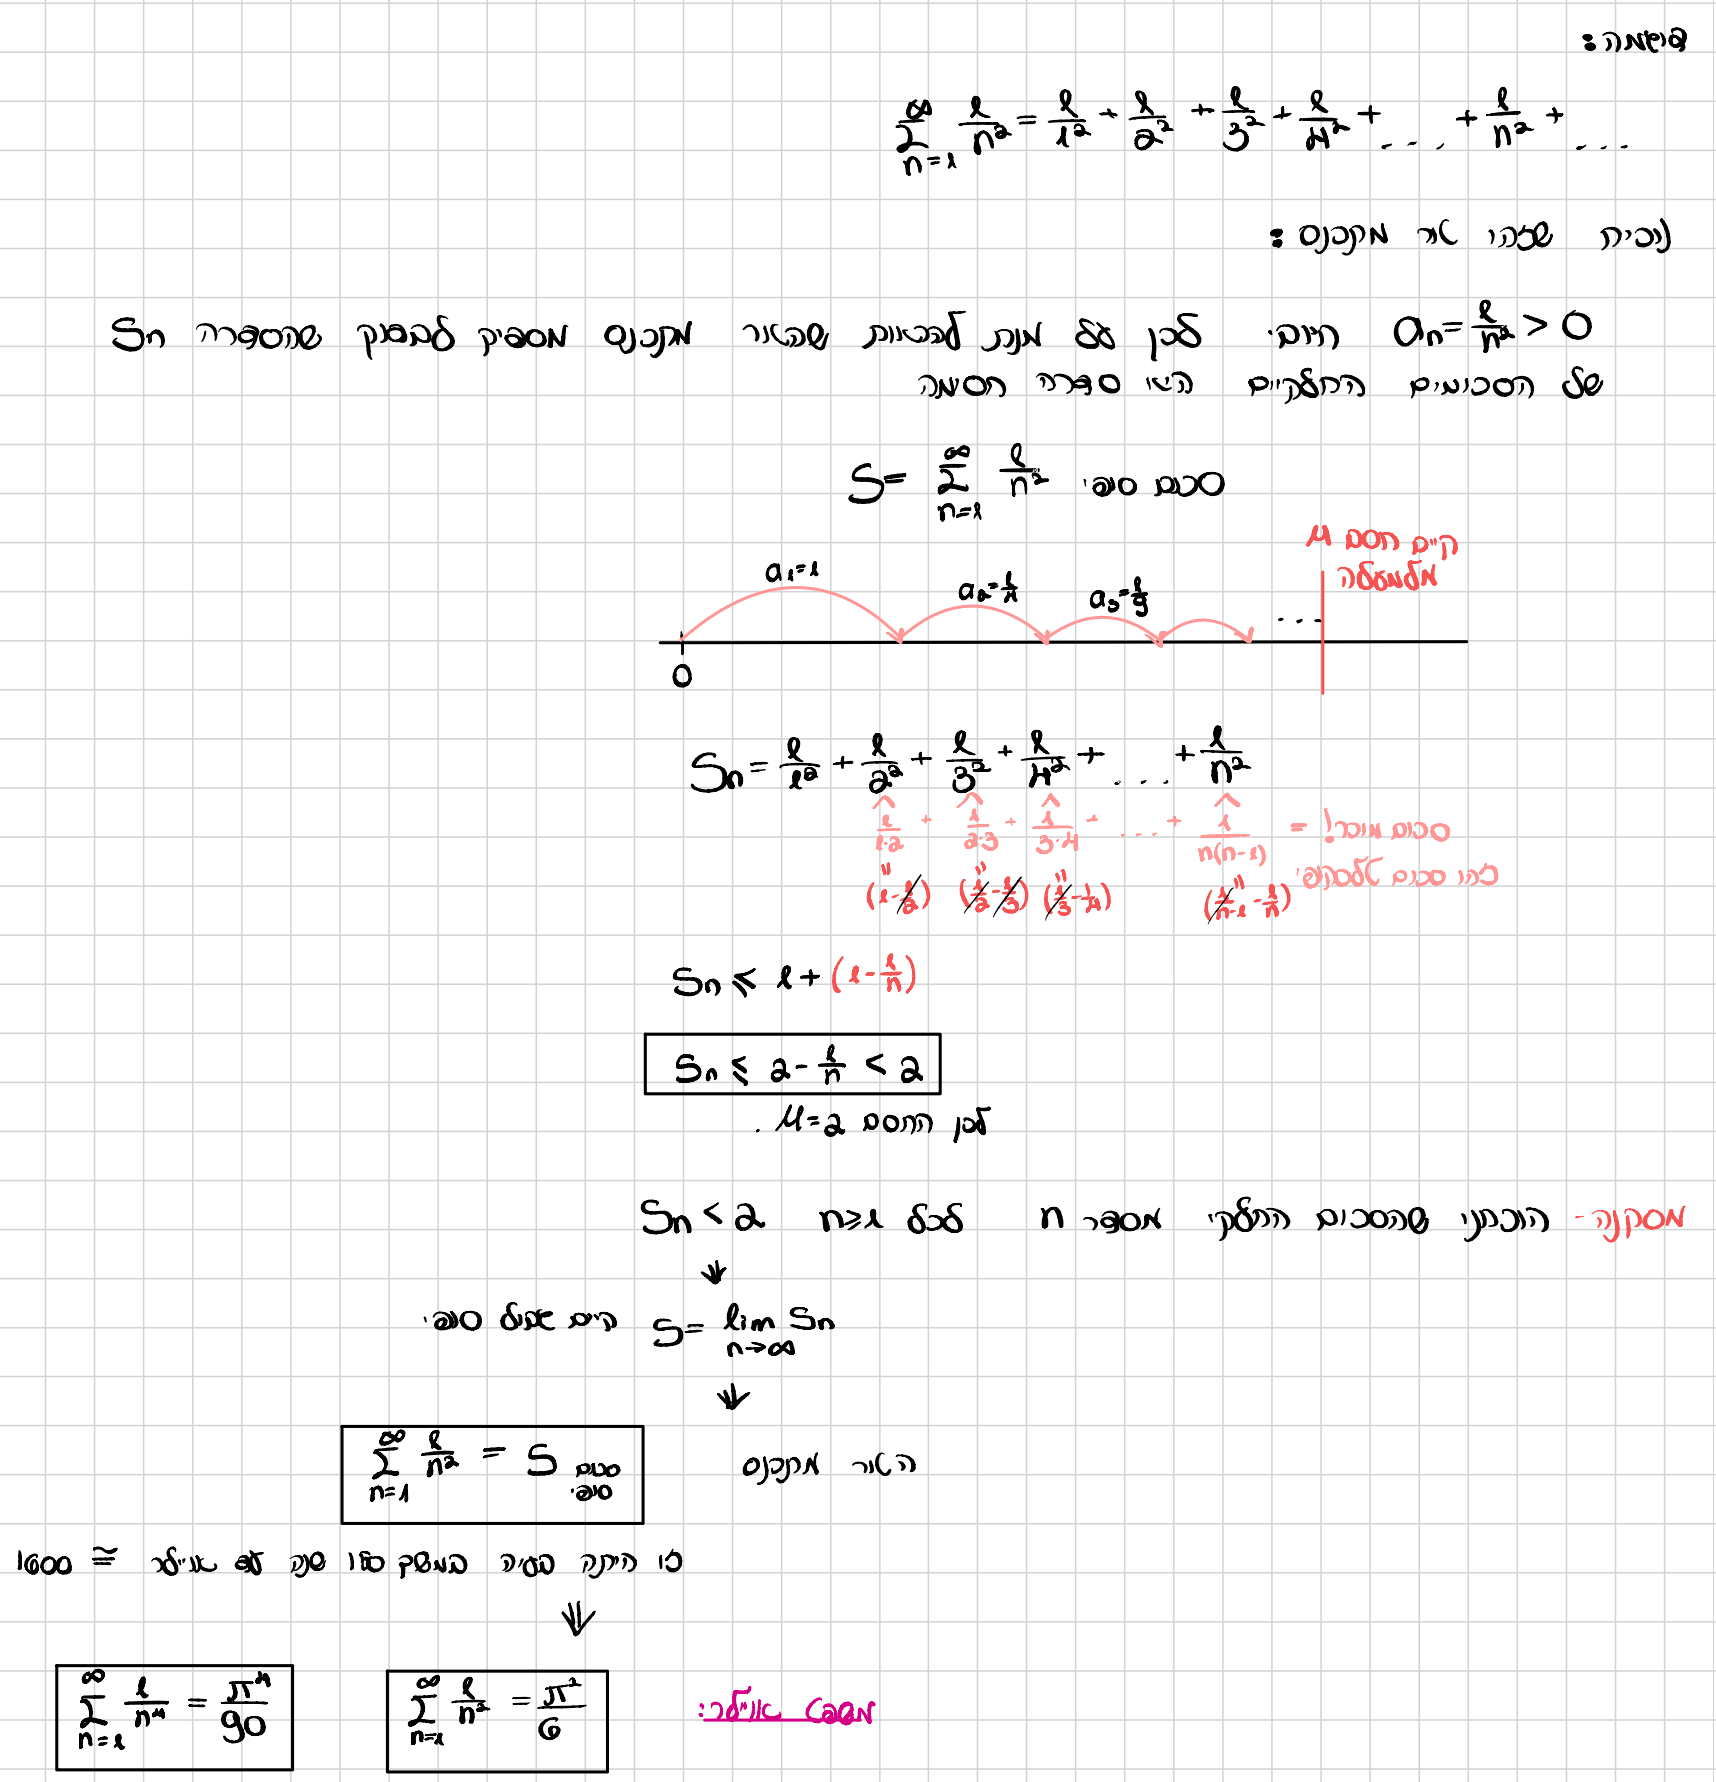 דוגמה:
\sum_{n=1}^{\infty} \frac{1}{n^2} = \frac{1}{1^2} + \frac{1}{2^2} + \frac{1}{3^2} + \frac{1}{4^2} + ... + \frac{1}{n^2} + ...
נוכיח שזהו טור מתכנס:
a_n = \frac{1}{n^2} > 0 חיובי. לכן על מנת להראות שהטור מתכנס מספיק לבדוק שהסדרה S_n
של הסכומים החלקיים היא סדרה חסומה
S = \sum_{n=1}^{\infty} \frac{1}{n^2} סכום סופי
קיים חסם M
מלמעלה
a_1=1 a_2=\frac{1}{4} a_3=\frac{1}{9} ...
0
S_n = \frac{1}{1^2} + \frac{1}{2^2} + \frac{1}{3^2} + \frac{1}{4^2} + ... + \frac{1}{n^2}
\frac{1}{1·2} + \frac{1}{2·3} + \frac{1}{3·4} + ... + \frac{1}{n(n-1)} = סכום מוכר!
זהו סכום טלסקופי
(1-\frac{1}{2}) (\frac{1}{2}-\frac{1}{3}) (\frac{1}{3}-\frac{1}{4}) (\frac{1}{n-1}-\frac{1}{n})
S_n ≤ 1 + (1-\frac{1}{n})
S_n ≤ 2-\frac{1}{n} < 2
לכן החסם M=2.
מסקנה - הוכחנו שהסכום החלקי מסדר n לכל n≥1 S_n < 2
⇓
S = \lim_{n→∞} S_n קיים גבול סופי
⇓
הטור מתכנס \sum_{n=1}^{\infty} \frac{1}{n^2} = S סכום סופי
זו היתה בעיה במשך שנה עד אוילר ≅ 1600
⇓
משפט אוילר: \sum_{n=1}^{\infty} \frac{1}{n^2} = \frac{π^2}{6} \sum_{n=1}^{\infty} \frac{1}{n^4} = \frac{π^4}{90}